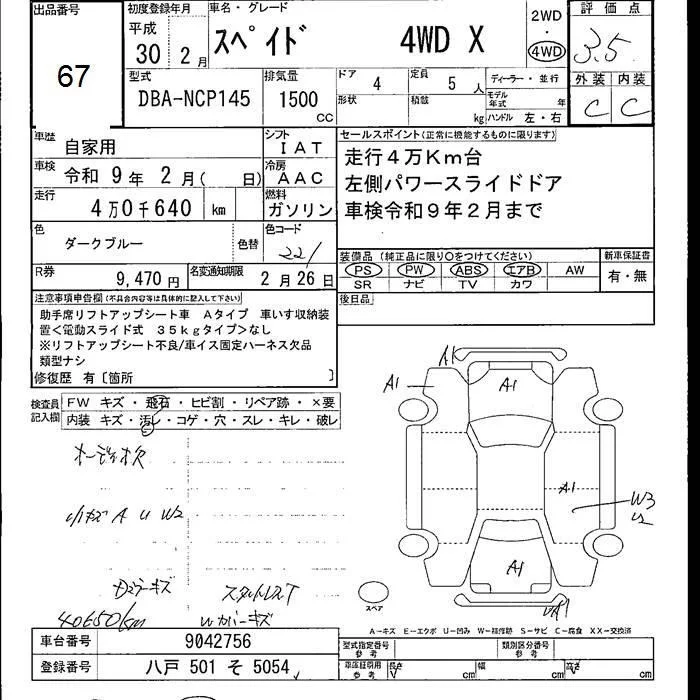 出品番号 初度登録年月 車名・グレード 2WD 評価点
67 平成 30 2月 スペイド 4WD X ・ 4WD 3.5
型式 排気量 ドア 4 定員 5人 ディーラー・並行 外装 内装
DBA-NCP145 1500 CC 形状 積載 kg モデル年式 年 C C
ハンドル 左・右
車歴 自家用 シフト IAT セールスポイント(正常に機能するものに限ります)
車検 令和 9年 2月( 日) 冷房 AAC 走行4万Km台
走行 4万0千640 km 燃料 ガソリン 左側パワースライドドア
車検令和9年2月まで
色 ダークブルー 色替 色コード 221
R券 9,470円 名変通知期限 2月26日 装備品(純正品に限り○をつけてください) 新車保証書
PS PW ABS エアB AW 有・無
SR ナビ TV カワ
注意事項申告欄(不具合内容等は具体的に記入して下さい) 後日品
助手席リフトアップシート車 Aタイプ 車いす収納装
置<電動スライド式 35kgタイプ>なし
※リフトアップシート不良/車イス固定ハーネス欠品
類型ナシ
修復歴 有〔箇所 〕
検査員記入欄 FW キズ・飛石・ヒビ割・リペア跡・×要
内装 キズ・汚レ・コゲ・穴・スレ・キレ・破レ
A1
A1 A1
オーディオ欠
A1 W3
小キズ A U W2
A1
ドアミラーキズ
40650km Wカバーキズ A1
スペア
A-キズ E-エクボ U-凹み W-補修跡 S-サビ C-腐食 XX-交換済
車台番号 9042756 型式指定番号 参考 類別区分番号 参考
登録番号 八戸 501 そ 5054 車庫証明用 参考 長さ cm 幅 cm 高さ cm